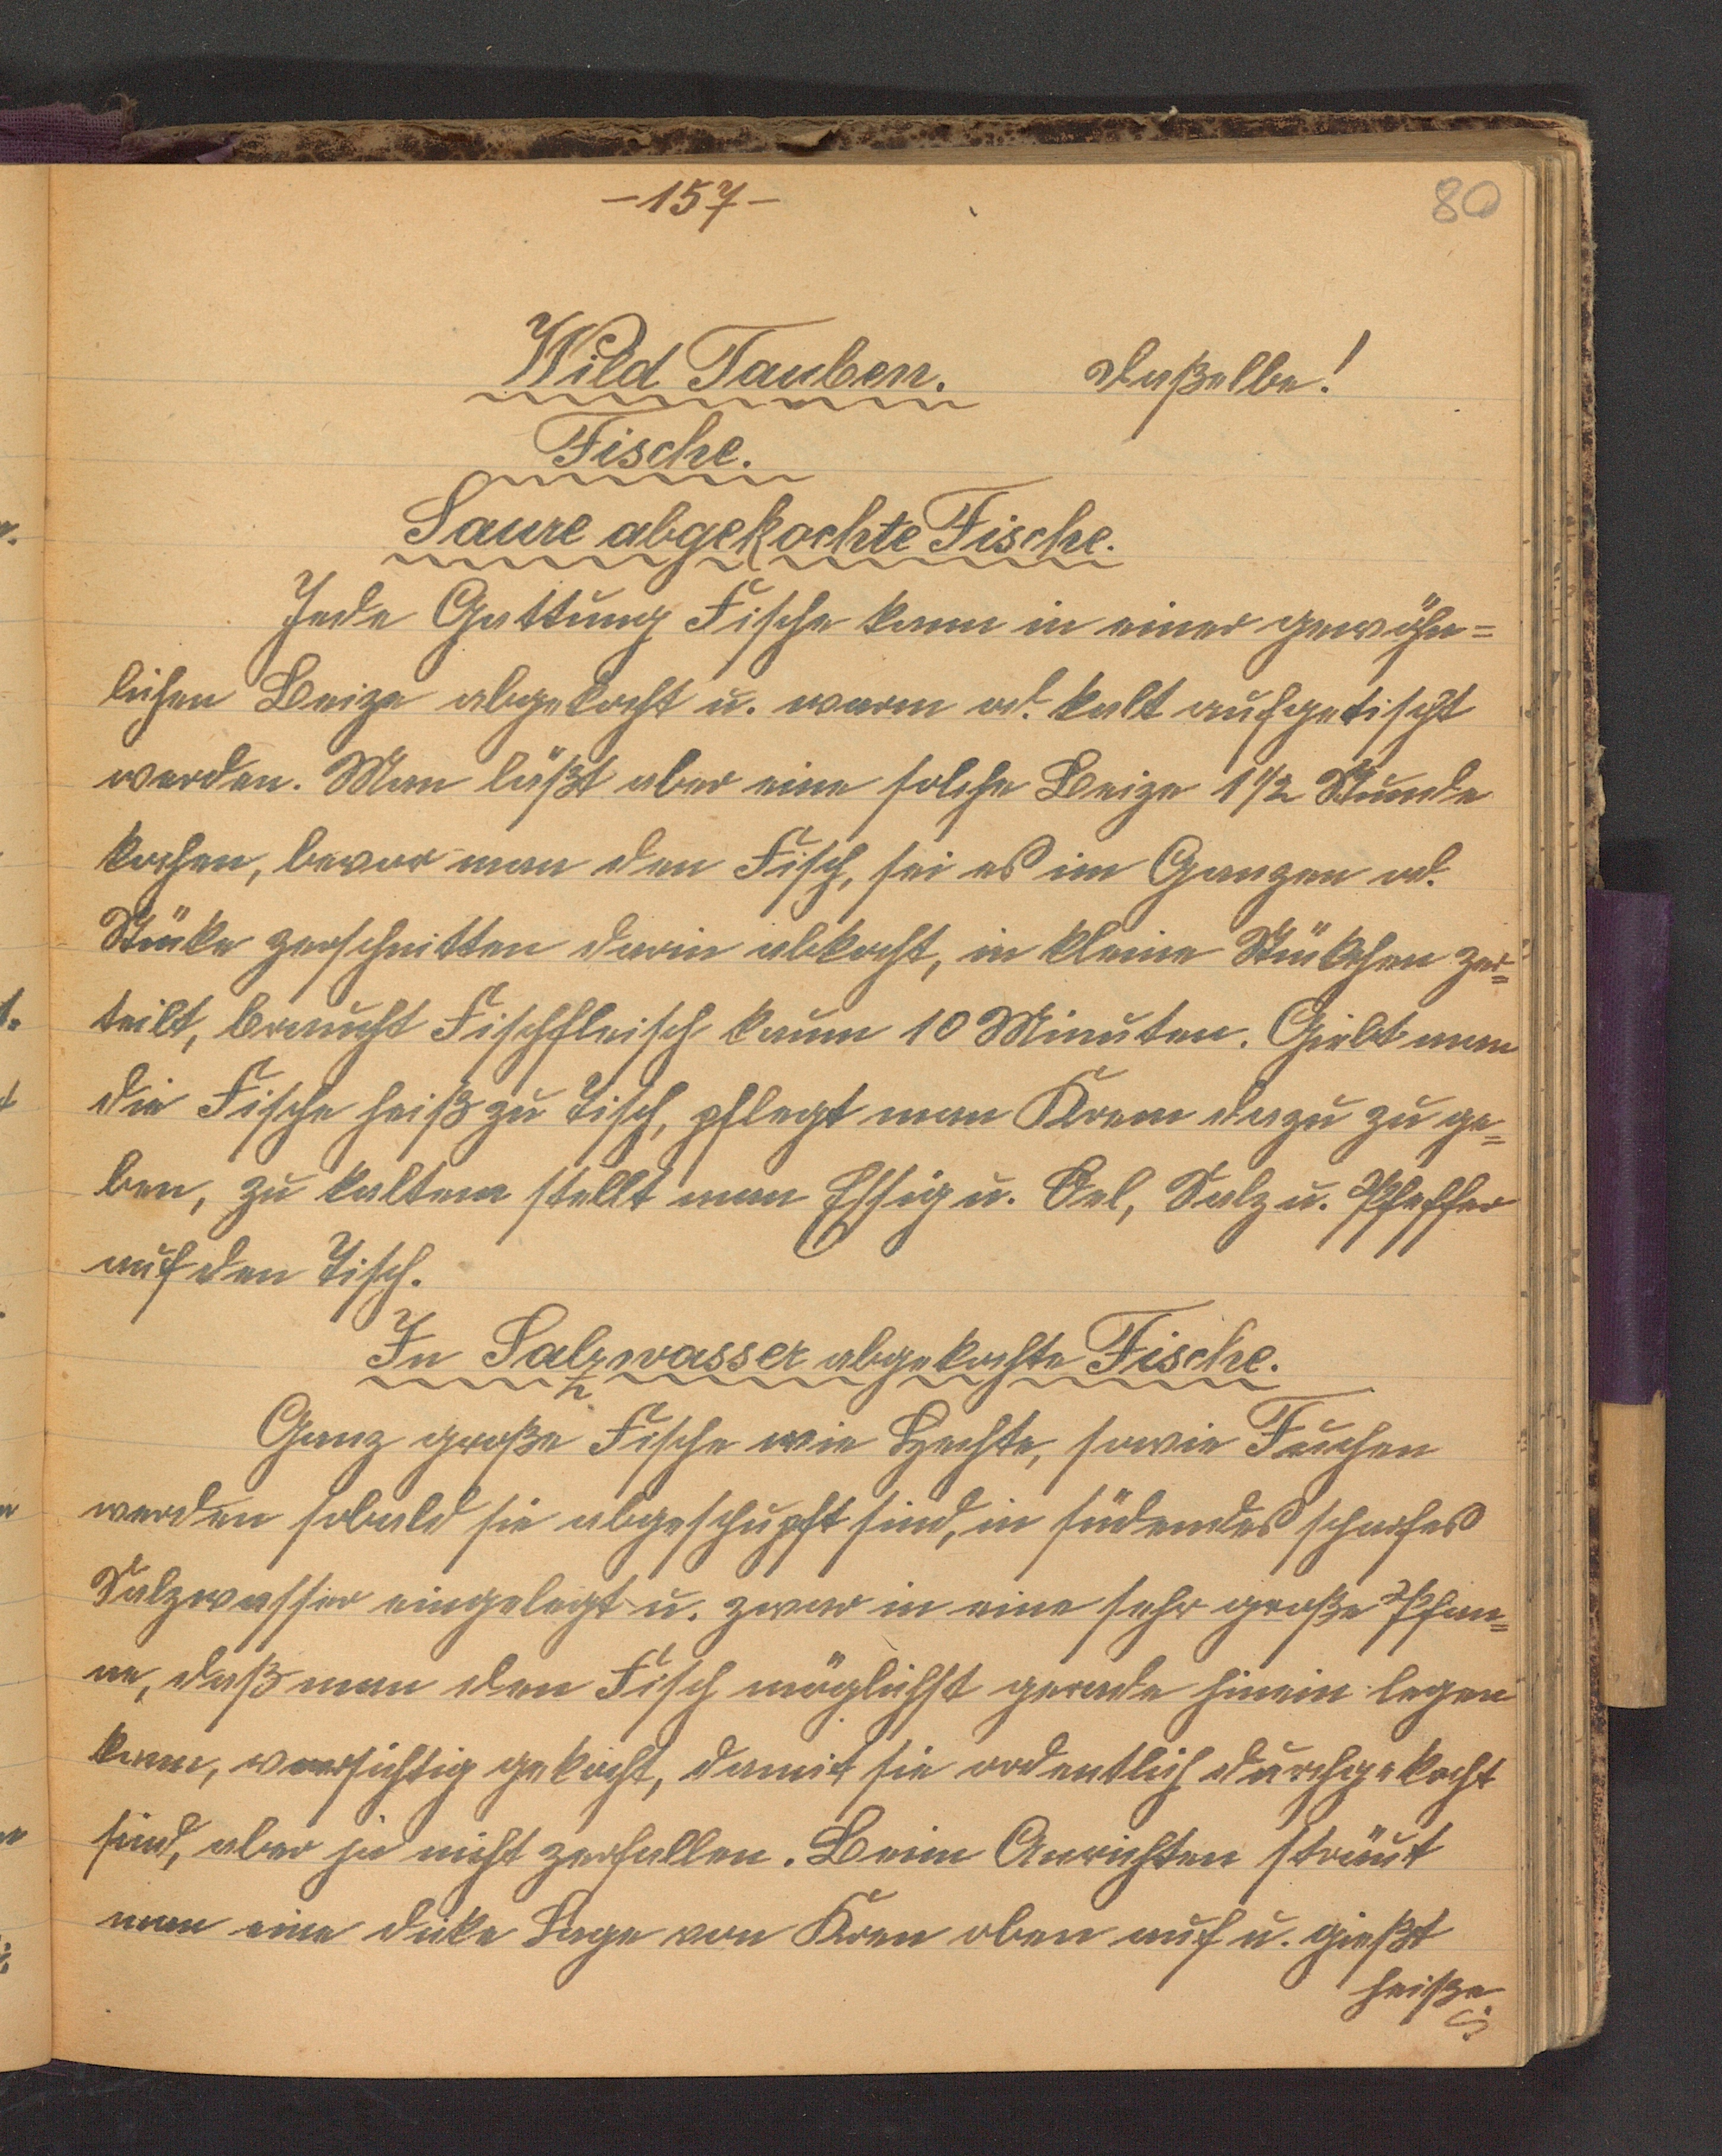 -157-
80
Wild Tauben. daßelbe!
Fische.
Saure abgekochte Fische.
Jede Gattung Fische kann in einer gewöhn=
lichen Beize abgekocht u. warm od. kalt aufgetischt
werden. Man läßt aber eine solche Beize 1 1/2 Stunde
kochen, bevor man den Fisch, sei es im Ganzen od.
Stüke zerschnitten darin abkocht, in kleine Stükchen zer=
teilt, braucht Fischfleisch kaum 10 Minuten. Giebt man
die Fische heiß zu Tisch, pflegt man Kren dazu zu ge=
ben, zu kaltem stellt man Essig u. Oel, Salz u. Pfeffer
auf den Tisch.
In Salzwasser abgekochte Fische.
Ganz große Fische wie Hechte, sowie Fuchen
werden sobald sie abgeschupft sind, in südendes scharfes
Salzwasser eingelegt u. zwar in eine sehr große Pfan=
ne, daß man den Fisch möglichst gerade hinein legen
kann, vorsichtig gekocht, damit sie ordentlich durchgekocht
sind, aber ja nicht zerfallen. Beim Anrichten sträut
man eine dike Lage von Kren oben auf u. gießt
heiße